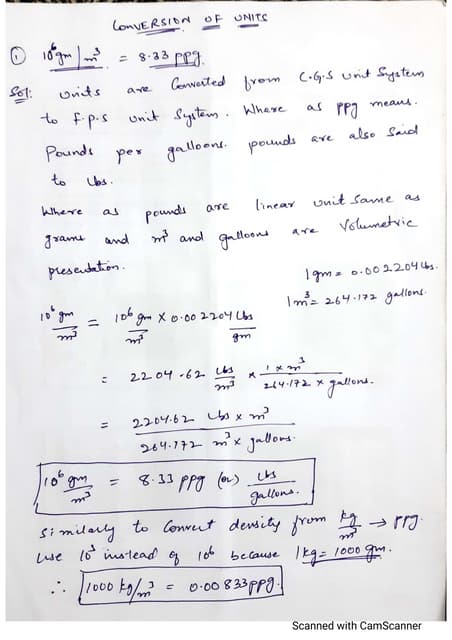 CONVERSION OF UNITS
① 10⁶ gm/m³ = 8.33 ppg.
Sol: units are Converted from C.G.S unit System
to F.p.s unit System. Where as ppg means.
Pounds per galloons. pounds are also Said
to Lbs.
Where as pounds are linear unit same as
grams and m³ and galloons are Volumetric
presentation.
1 gm = 0.002204 Lbs.
1 m³ = 264.172 gallons.
10⁶ gm/m³ = 10⁶ gm/m³ × 0.002204 Lbs/gm
= 2204.62 Lbs/m³ × 1 × m³/264.172 × gallons.
= 2204.62 Lbs × m³/264.172 m³ × gallons.
10⁶ gm/m³ = 8.33 ppg (or) Lbs/gallons.
Similarly to Convert density from kg/m³ → ppg.
use 10³ instead of 10⁶ because 1 kg = 1000 gm.
∴ 1000 kg/m³ = 0.00833 ppg.
Scanned with CamScanner